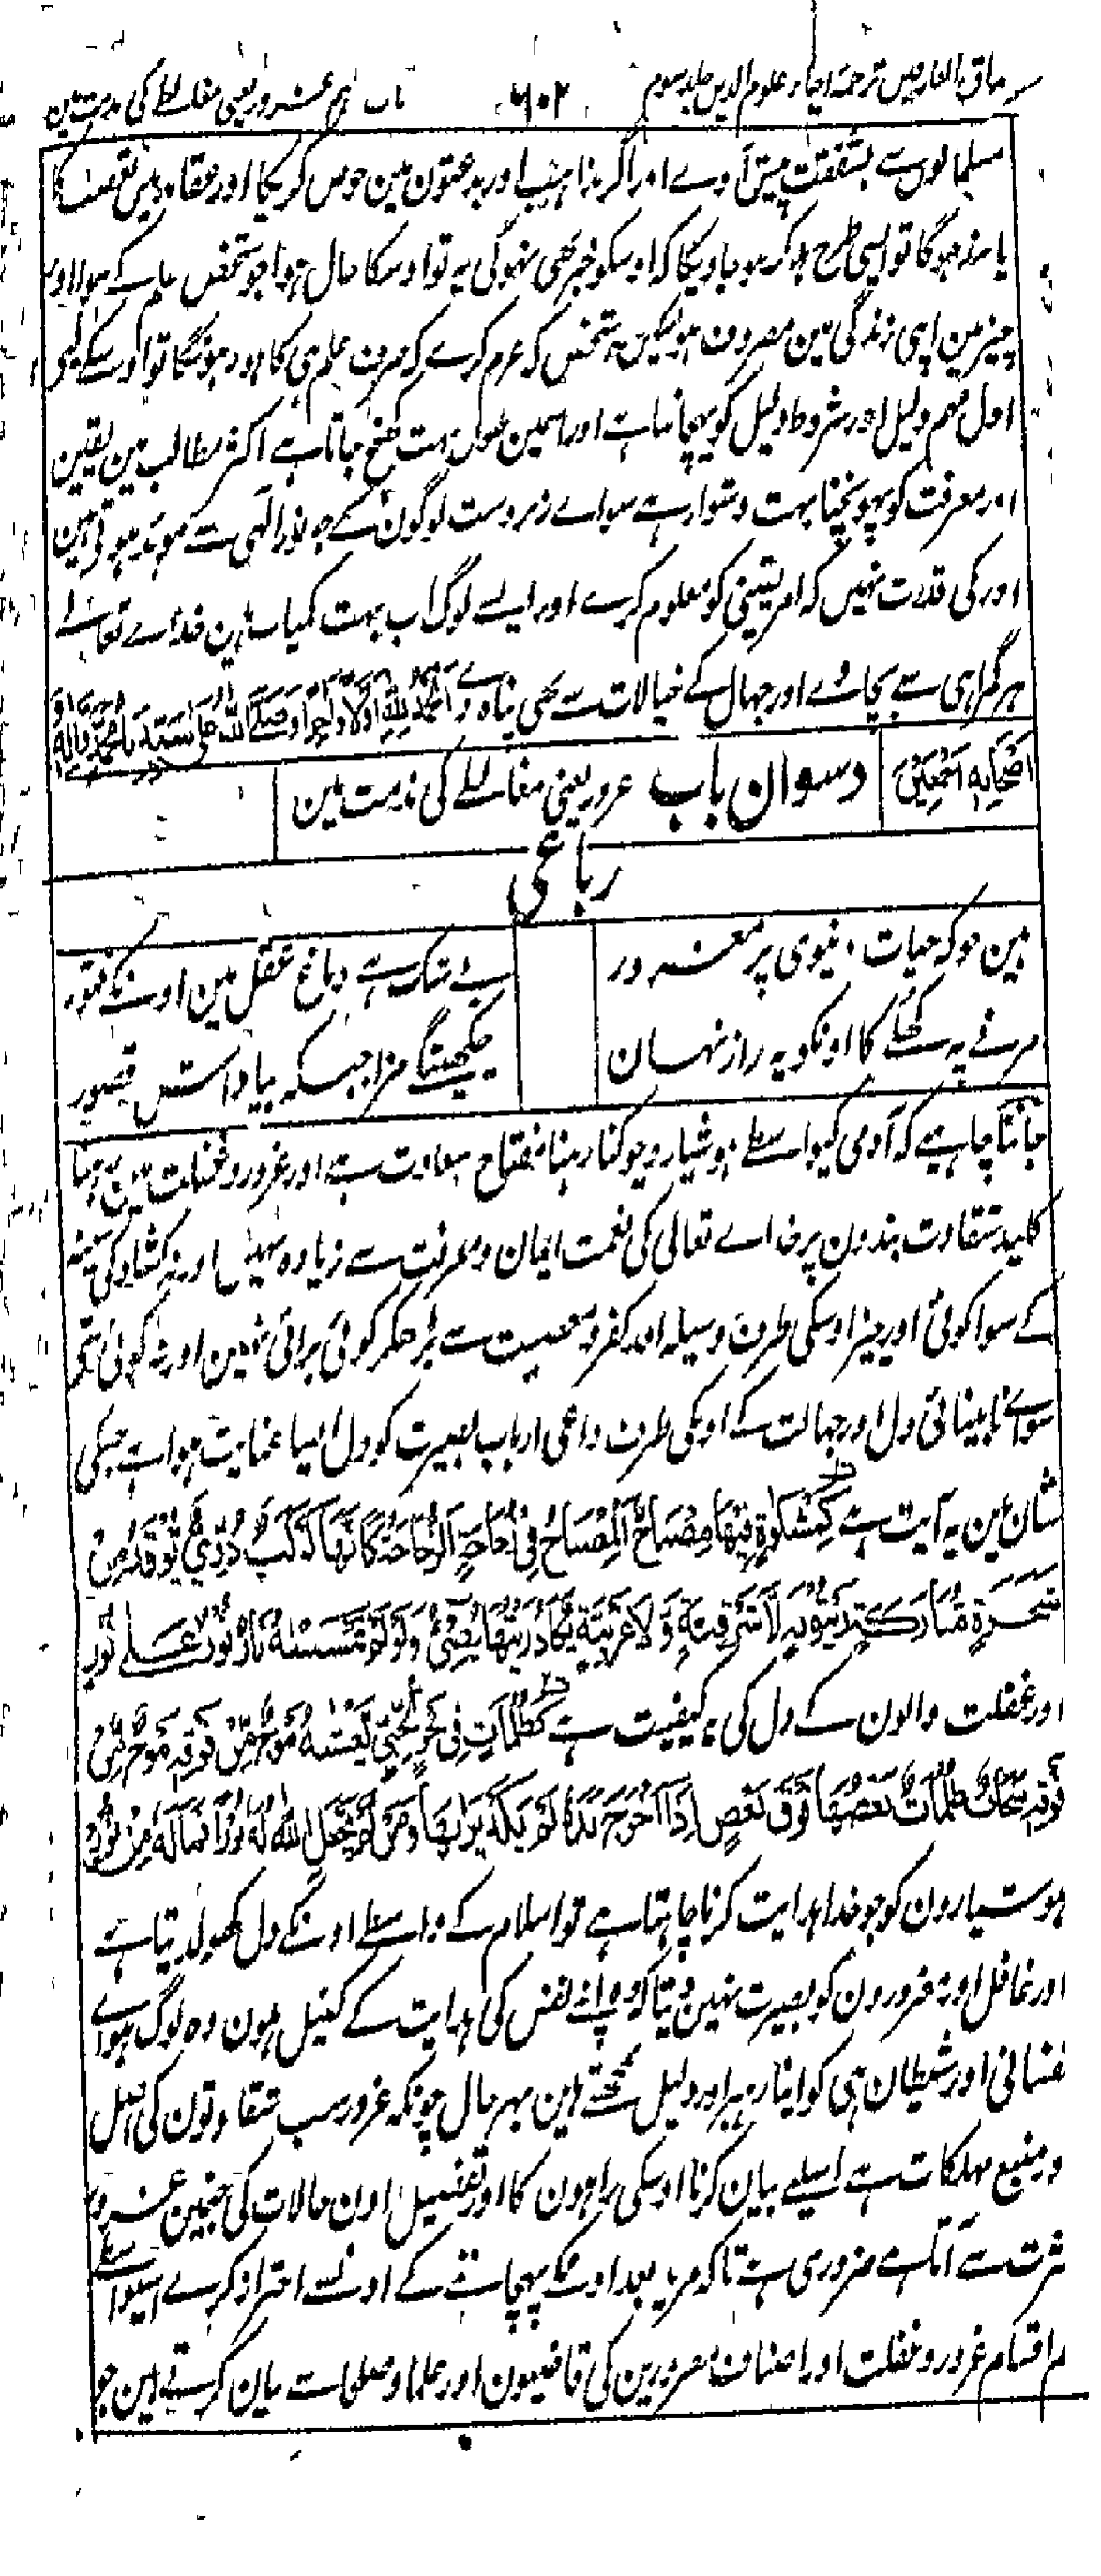 مذاق العارفین ترجمۂ احیاء علوم الدین جلد سوم ۶۰۲ باب دہم غرور یعنی مغالطے کی مذمت مین
مسلمانون سے بشفقت پیش آوے اور اگر مذاہب اور بدعتون مین خوض کریگا اور عقاید مین تعصب کا
پابند ہوگا تو اسی طرح ہوکر ہو جاویگا کہ اوسکو خبر بھی نہوگی یہ تو اوسکا حال ہوا جو شخص علم کے سوا اور
چیز مین اپنی زندگی مین مصروف ہو لیکن جو شخص کہ عزم کرے کہ صرف علم ہی کا ہو رہونگا تو اوسکے لیے
اول مہم دلیل اور شروط دلیل کو پہچاننا ہے اور اسمین طول بہت کھنچ جاتا ہے اکثر مطالب مین یقین
اور معرفت کو پہونچنا بہت دشوار ہے سواے زبردست لوگون کے جو نور الٰہی سے موید ہوتے ہین
اور کی قدرت نہیں کہ امر یقینی کو معلوم کرے اور ایسے لوگ اب بہت کمیاب ہین خداے تعالے
ہر گمراہی سے بچاوے اور جہال کے خیالات سے بھی پناہ دے اَلْحَمْدُ لِلّٰهِ اَوَّلًا وَاٰخِرًا وَصَلَّے اللّٰهُ عَلٰی سَیِّدِنَا مُحَمَّدٍ وَاٰلِهٖ وَ
اَصْحَابِهٖ اَجْمَعِیْنَ
دسوان باب غرور یعنی مغالطے کی مذمت مین
رباعی
ہین جو کہ حیات دنیوی پر مغرور بے شک ہے دماغ عقل مین اونکے فتور
مرنے پہ کھلے گا اونکو یہ راز نہان چکھینگے مزا جبکہ بپاداش قصور
جاننا چاہیے کہ آدمی کیواسطے ہوشیار و چوکنا رہنا مفتاح سعادت ہے اور غرور و غفلت مین رہنا
کلید شقاوت بندون پر خداے تعالی کی نعمت ایمان و معرفت سے زیادہ نہین اور نہ کشادگی سینہ
کے سوا کوئی اور چیز اوسکی طرف وسیلہ اور کفر و معصیت سے بڑھکر کوئی برائی نہین اور نہ کوئی شے
سواے نابینائی دل اور جہالت کے اوسکی طرف داعی ارباب بصیرت کو دل ایسا عنایت ہوا ہے جسکی
شان مین یہ آیت ہے كَمِشْكٰوةٍ فِيْهَا مِصْبَاحٌ اَلْمِصْبَاحُ فِيْ زُجَاجَةٍ اَلزُّجَاجَةُ كَاَنَّهَا كَوْكَبٌ دُرِّيٌّ يُّوْقَدُ مِنْ
شَجَرَةٍ مُّبَارَكَةٍ زَيْتُوْنَةٍ لَّا شَرْقِيَّةٍ وَّلَا غَرْبِيَّةٍ يَّكَادُ زَيْتُهَا يُضِيْٓءُ وَلَوْ لَمْ تَمْسَسْهُ نَارٌ نُوْرٌ عَلٰی نُوْرٍ
اور غفلت والون کے دل کی یہ کیفیت ہے كَظُلُمَاتٍ فِيْ بَحْرٍ لُّجِّيٍّ يَّغْشٰهُ مَوْجٌ مِّنْ فَوْقِهٖ مَوْجٌ مِّنْ
فَوْقِهٖ سَحَابٌ ظُلُمَاتٌ بَعْضُهَا فَوْقَ بَعْضٍ اِذَا اَخْرَجَ يَدَهٗ لَمْ يَكَدْ يَرٰهَا وَمَنْ لَّمْ يَجْعَلِ اللّٰهُ لَهٗ نُوْرًا فَمَا لَهٗ مِنْ نُّوْرٍ
ہوشیارون کو جو خدا ہدایت کرنا چاہتا ہے تو اسلام کے واسطے اونکے دل کھولدیتا ہے
اور غافل اور مغرورون کو بصیرت نہین دیتا کہ وہ اپنے نفس کی ہدایت کے کفیل ہون وہ لوگ ہواے
نفسانی اور شیطان ہی کو اپنا رہبر اور دلیل سمجھتے ہین بہر حال چونکہ غرور سب شقاوتون کی اصل
و منبع مہلکات ہے اسلیے بیان کرنا اوسکی راہون کا اور تفصیل اون حالات کی جنمین غرور
کثرت سے آتا ہے ضروری ہے تاکہ مرید بعد اونکے پہچاننے کے اونسے احتراز کرے اسیواسطے
ہم اقسام غرور و غفلت اور اصناف مغرورین کی قاضیون اور علما و صلحا سے بیان کرتے ہین جو